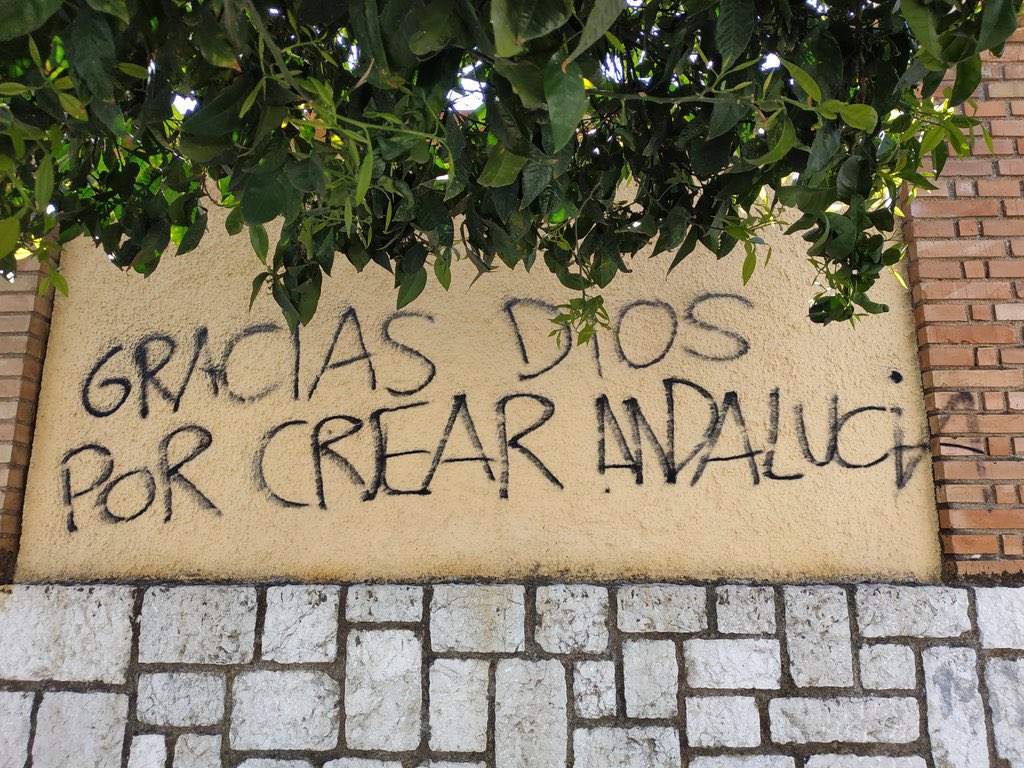 GRACIAS DIOS
POR CREAR ANDALUCiA